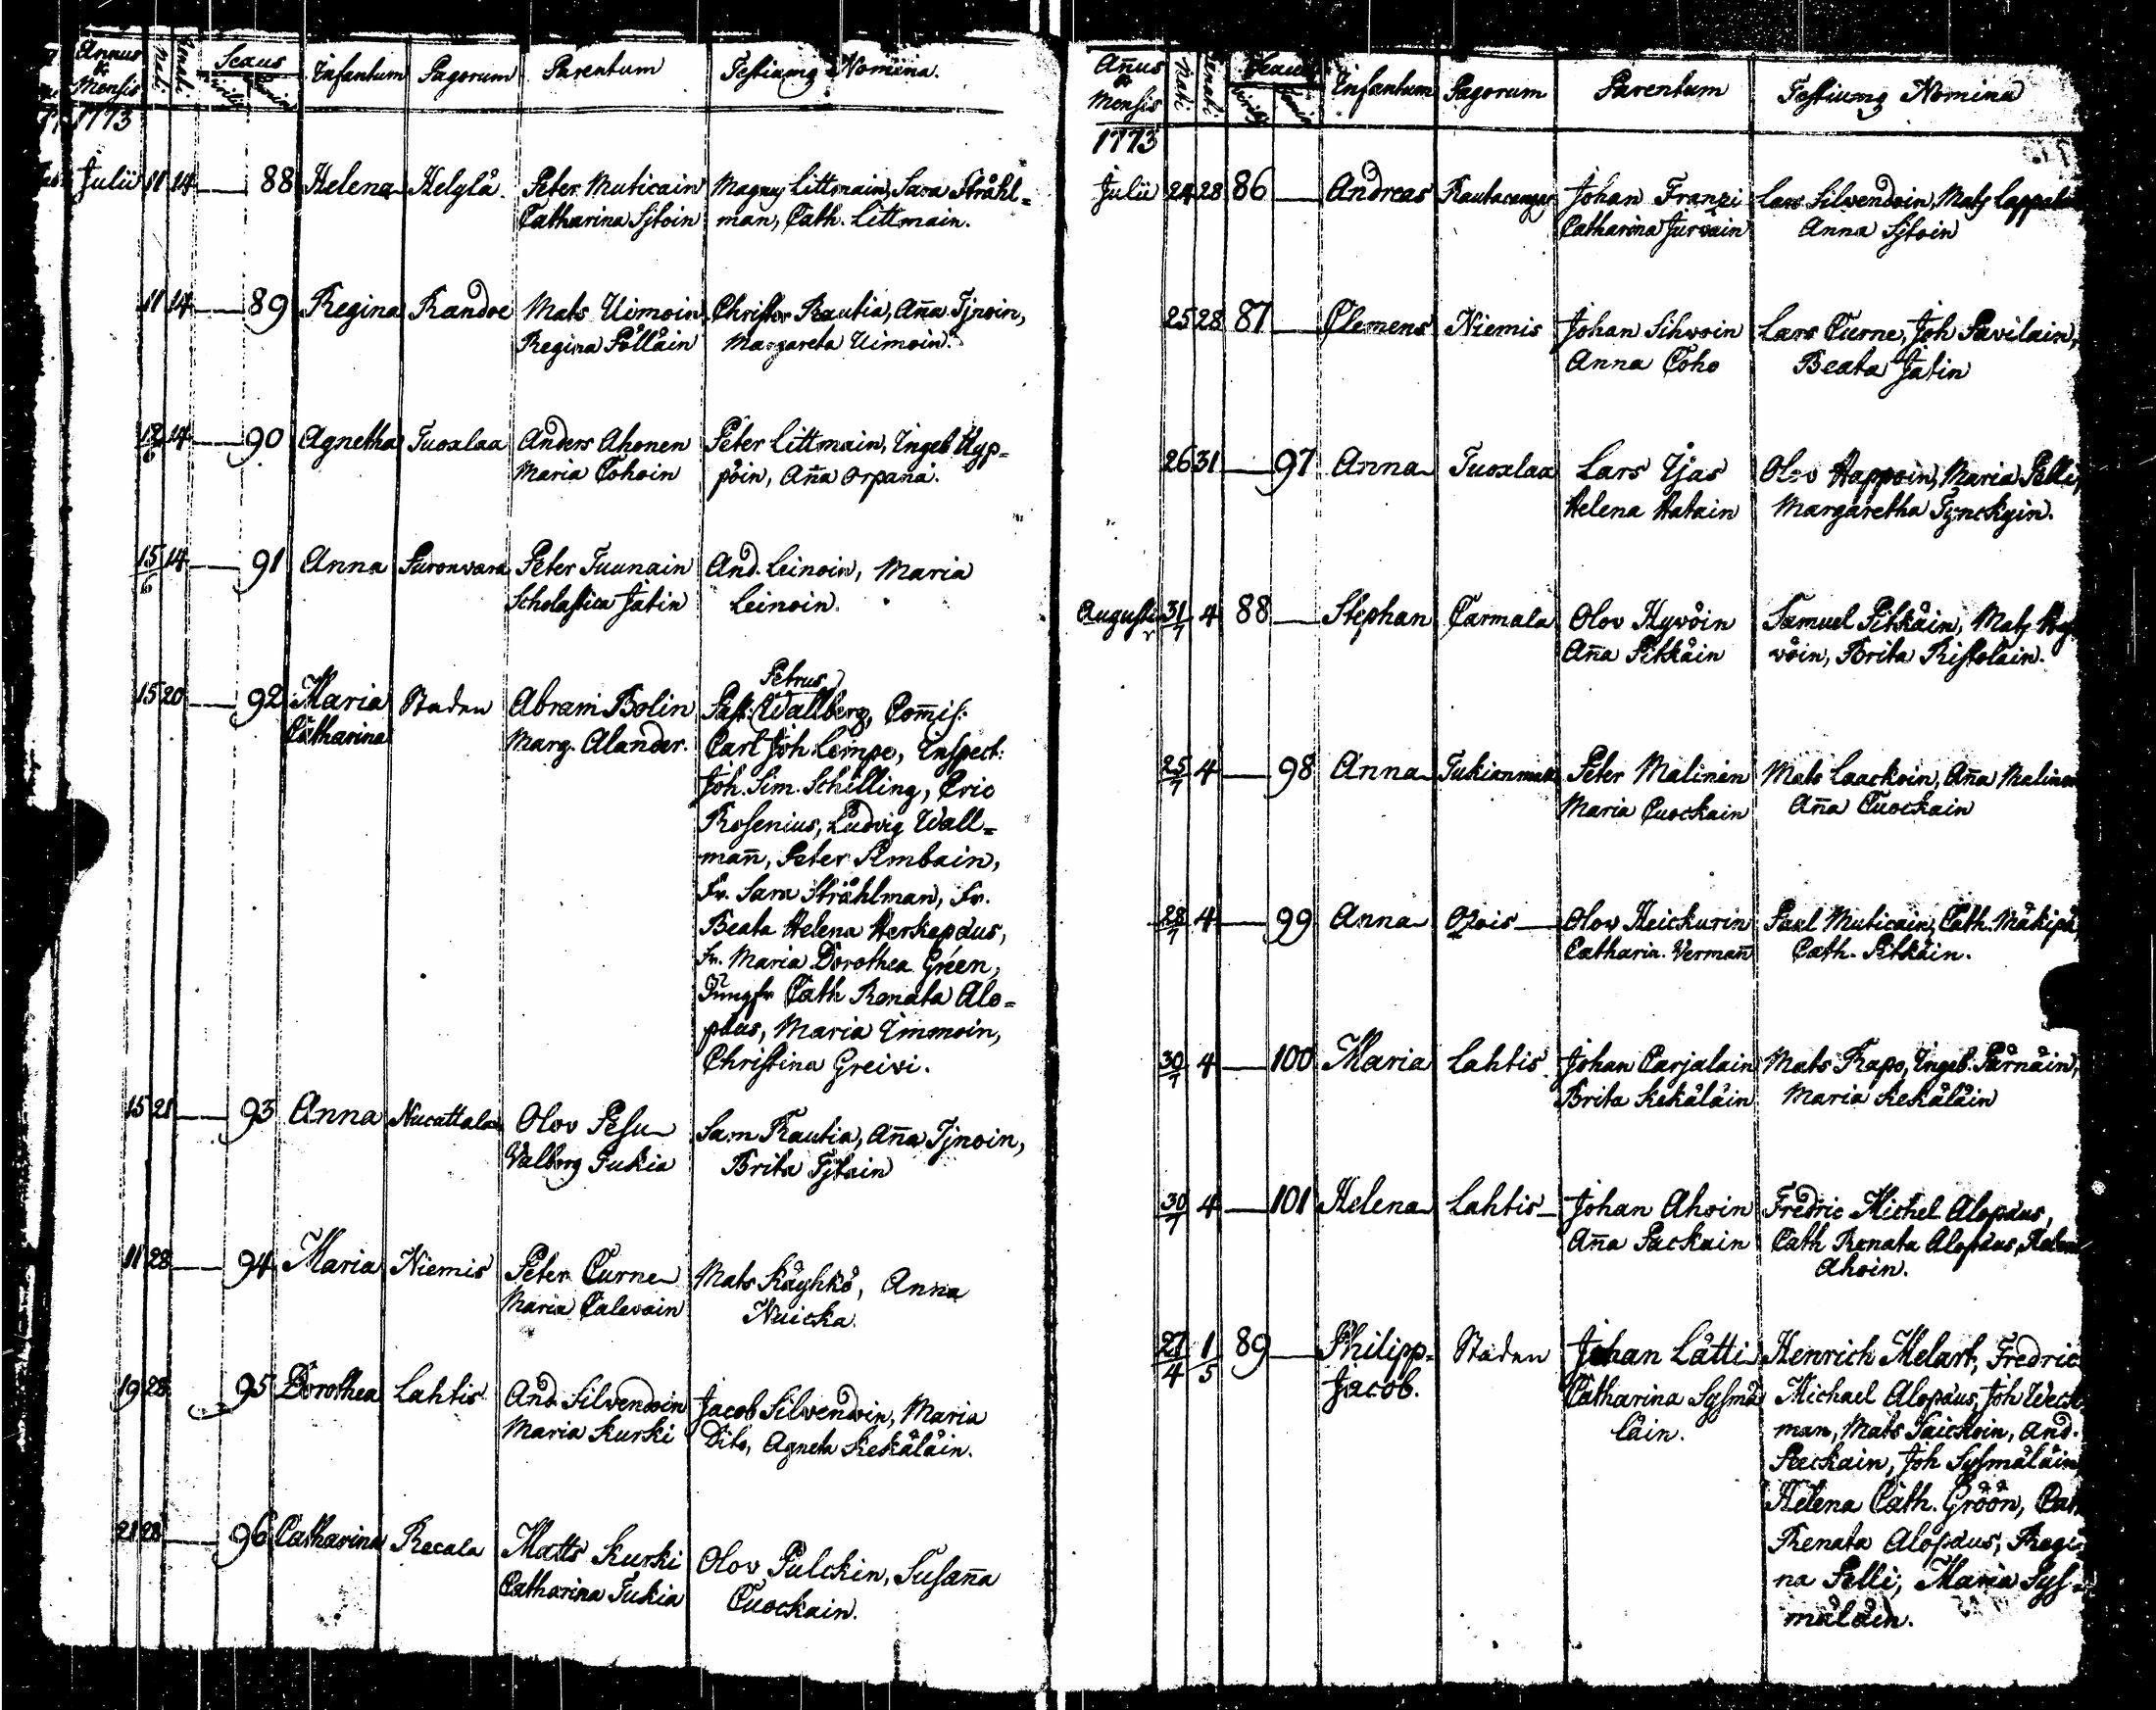 Annus & Mensis Nati. Renati. Sexus Virilis Feminin Infantum Pagorum Parentum Testiumq Nomina.
1773
Julii 11 14 — 88 Helena Helylä. Peter Muticain Magnus Littmain, Sara Stråhl=
Catharina Sjtoin man, Cath. Littmain.
11 14 — 89 Regina Randoe Mats Uimoin, Christer Rautia, Aña Tjnoin,
Regina Pölläin Margareta Uimoin.
12/6 14 — 90 Agnetha Tuoxlaa Anders Ahonen Peter Littmain, Ingeb Hyp=
Maria Cohoin pöin, Aña Orpana.
15/6 14 — 91 Anna Puronvara Peter Tuunain And. Leinoin, Maria
Scholastica Jatin Leinoin.
Petrus
15 20 — 92 Maria Staden Abram Bolin Past: Wallberg, Com̄is:
Catharina Marg. Alander. Carl Joh. Leimpe, Inspect:
Joh. Sim. Schilling, Eric
Rosenius, Ludvig Wall=
mañ, Peter Pimbain,
Fr. Sara Stråhlman, Fr.
Beata Helena Herkepæus,
Fr. Maria Dorothea Green,
Jungfr Cath Renata Alo=
pæus, Maria Immoin,
Christina Greivi.
15 21 — 93 Anna Nucuttala Olov Pesu Sam Rautia, Aña Tjnoin,
Valborg Tukia Brita Tjtain
11 28 — 94 Maria Niemis Peter Curne Mats Käyhkö, Anna
Maria Calevain Nuicka.
19 28 95 Dorothea Lahtis And. Silvendoin Jacob Silvendoin, Maria
Maria Kurki Dito, Agneta Kekäläin.
21 28 — 96 Catharina Recala Matts Kurki Olov Pulckin, Susaña
Catharina Tukia Cuockain.
Añus & Mensis Nati. Renati. Sexus Virilis Feminin Infantum Pagorum Parentum Testiumq Nomina
1773
Julii 24 28 86 — Andreas Rautacangas Johan Franzi Lars Silvendoin, Mats Lappalain
Catharina Jurvain Anna Sjtoin
25 28 87 — Clemens Niemis Johan Sihvoin Lars Curne, Joh Pavilain,
Anna Coho Beata Jatin
26 31 — 97 Anna Tuoxlaa Lars Ijas Olov Happoin, Maria Pelli,
Helena Hatain Margaretha Tynckyin.
Augusti 31/7 4 88 — Stephan Carmala Olov Hyvöin Samuel Pitkäin, Mats Hy
Aña Pitkäin vöin, Brita Ristolain.
25/7 4 — 98 Anna Tukianmäki Peter Malinen Mats Laackoin, Aña Malinen
Maria Cuockain Aña Cuockain
28/7 4 — 99 Anna Otois Olov Heickurin Paul Muticain, Cath. Mäkipä,
Catharin. Vermañ Cath. Pitkäin.
30/7 4 — 100 Maria Lahtis Johan Carjalain Mats Rapo, Ingeb. Pärnäin,
Brita Kekäläin Maria Kekäläin
30/7 4 — 101 Helena Lahtis Johan Ahoin Fredric Michel Alopæus,
Aña Packain Cath Renata Alopæus, Helena
Ahoin.
27/4 1/5 89 — Philipp= Staden Johan Lätti Henrich Melart, Fredric
Jacob. Catharina Sysmä Michael Alopæus, Joh Weck
läin. man, Mats Taickoin, And.
Peckain, Joh Sysmäläin
Helena Cath. Gröön, Cath
Renata Alopæus, Regi=
na Pelli, Maria Sys=
mäläin.